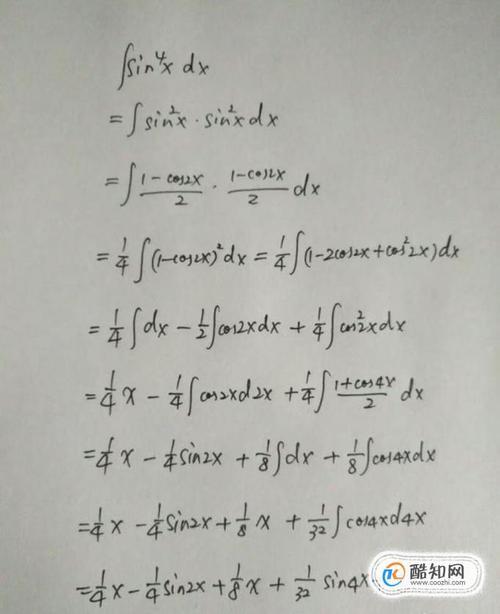 ∫sin⁴x dx
= ∫sin²x · sin²x dx
= ∫ (1-cos2x)/2 · (1-cos2x)/2 dx
= 1/4 ∫(1-cos2x)² dx = 1/4 ∫(1-2cos2x+cos²2x)dx
= 1/4 ∫dx - 1/2 ∫cos2xdx + 1/4 ∫cos²2xdx
= 1/4 x - 1/4 ∫cos2xd2x + 1/4 ∫ (1+cos4x)/2 dx
= 1/4 x - 1/4 sin2x + 1/8 ∫dx + 1/8 ∫cos4xdx
= 1/4 x - 1/4 sin2x + 1/8 x + 1/32 ∫cos4xd4x
= 1/4 x - 1/4 sin2x + 1/8 x + 1/32 sin4x
酷知网
www.coozhi.com